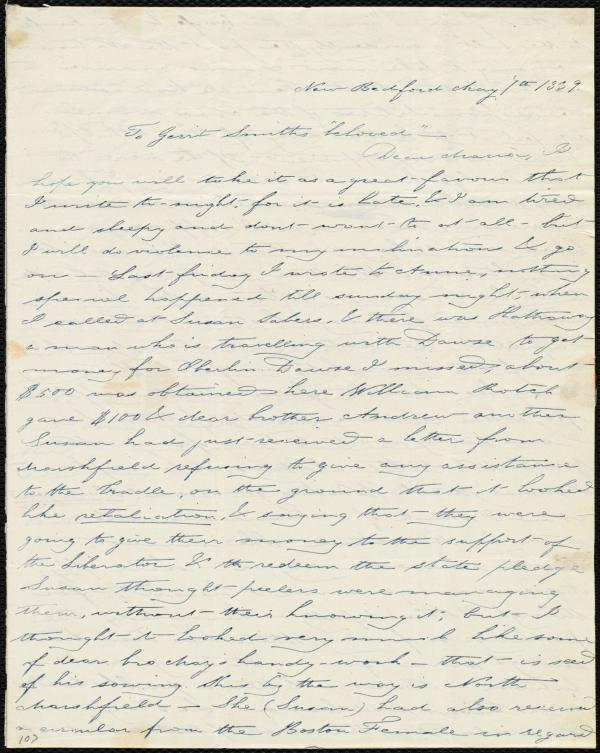 New Bedford May 7th 1839.
To Gerrit Smith's "beloved" —
Dear Maria, I
hope you will take it as a great favour that
I write to-night, for it is late, & I am tired
and sleepy and dont want to at all - but
I will do violence to my inclinations & go
on — Last friday I wrote to Anne, nothing
special happened till sunday night, when
I called at Susan Tabers, & there was Hathaway
a man who is travelling with Dawse to get
money for Oberlin Dawse I missed, about
$500 was obtained here William Rotch
gave $100 & dear brother Andrew another
Susan had just received a letter from
Marshfield refusing to give any assistance
to the Cradle, on the ground that it looked
like retaliation, & saying that they were
going to give their money to the support of
the Liberator & to redeem the state pledge
Susan thought peelers were managing
them, without their knowing it; but I
thought it looked very much like some
of dear bro May's handy-work — that is seed
of his sowing. This by the way is North
Marshfield — She (Susan) had also received
a circular from the Boston Female in regard
107